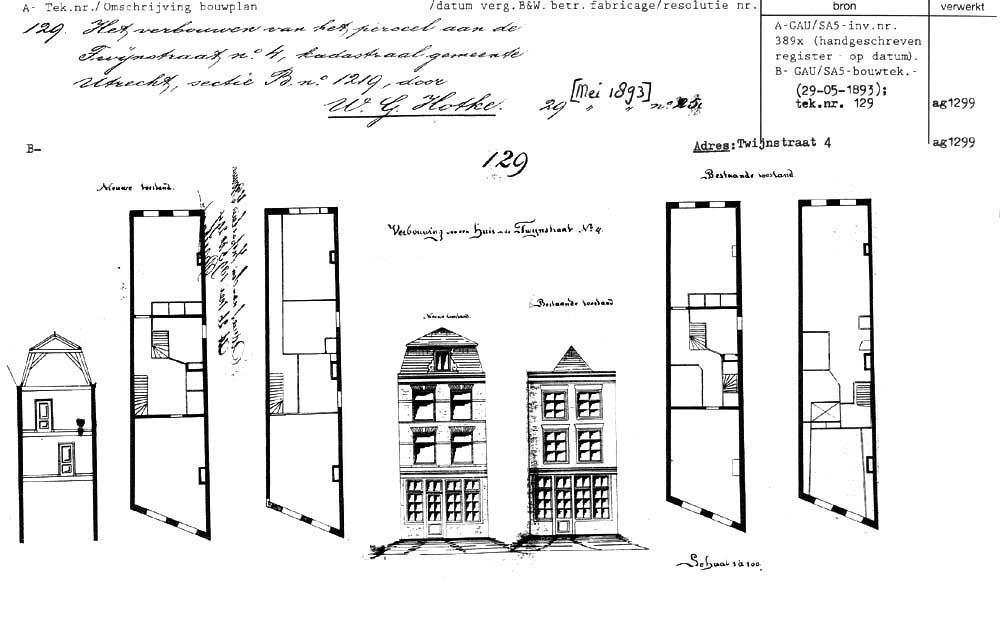 A- Tek.nr./Omschrijving bouwplan /datum verg.B&W. betr. fabricage/resolutie nr. bron verwerkt
129. Het verbouwen van het perceel aan de
Twijnstraat, no. 4, kadastraal gemeente
Utrecht, sectie B. no. 1219, door
W. G. Hotke. 29 [Mei 1893] " " no.
A-GAU/SA5-inv.nr.
389x (handgeschreven
register - op datum).
B- GAU/SA5-bouwtek.-
(29-05-1893);
tek.nr. 129 ag1299
B- Adres: Twijnstraat 4 ag1299
129
Nieuwe toestand. Bestaande toestand.
Verbouwing van een Huis a/d Twijnstraat No. 4.
Nieuwe toestand. Bestaande toestand
Schaal 1 à 100.